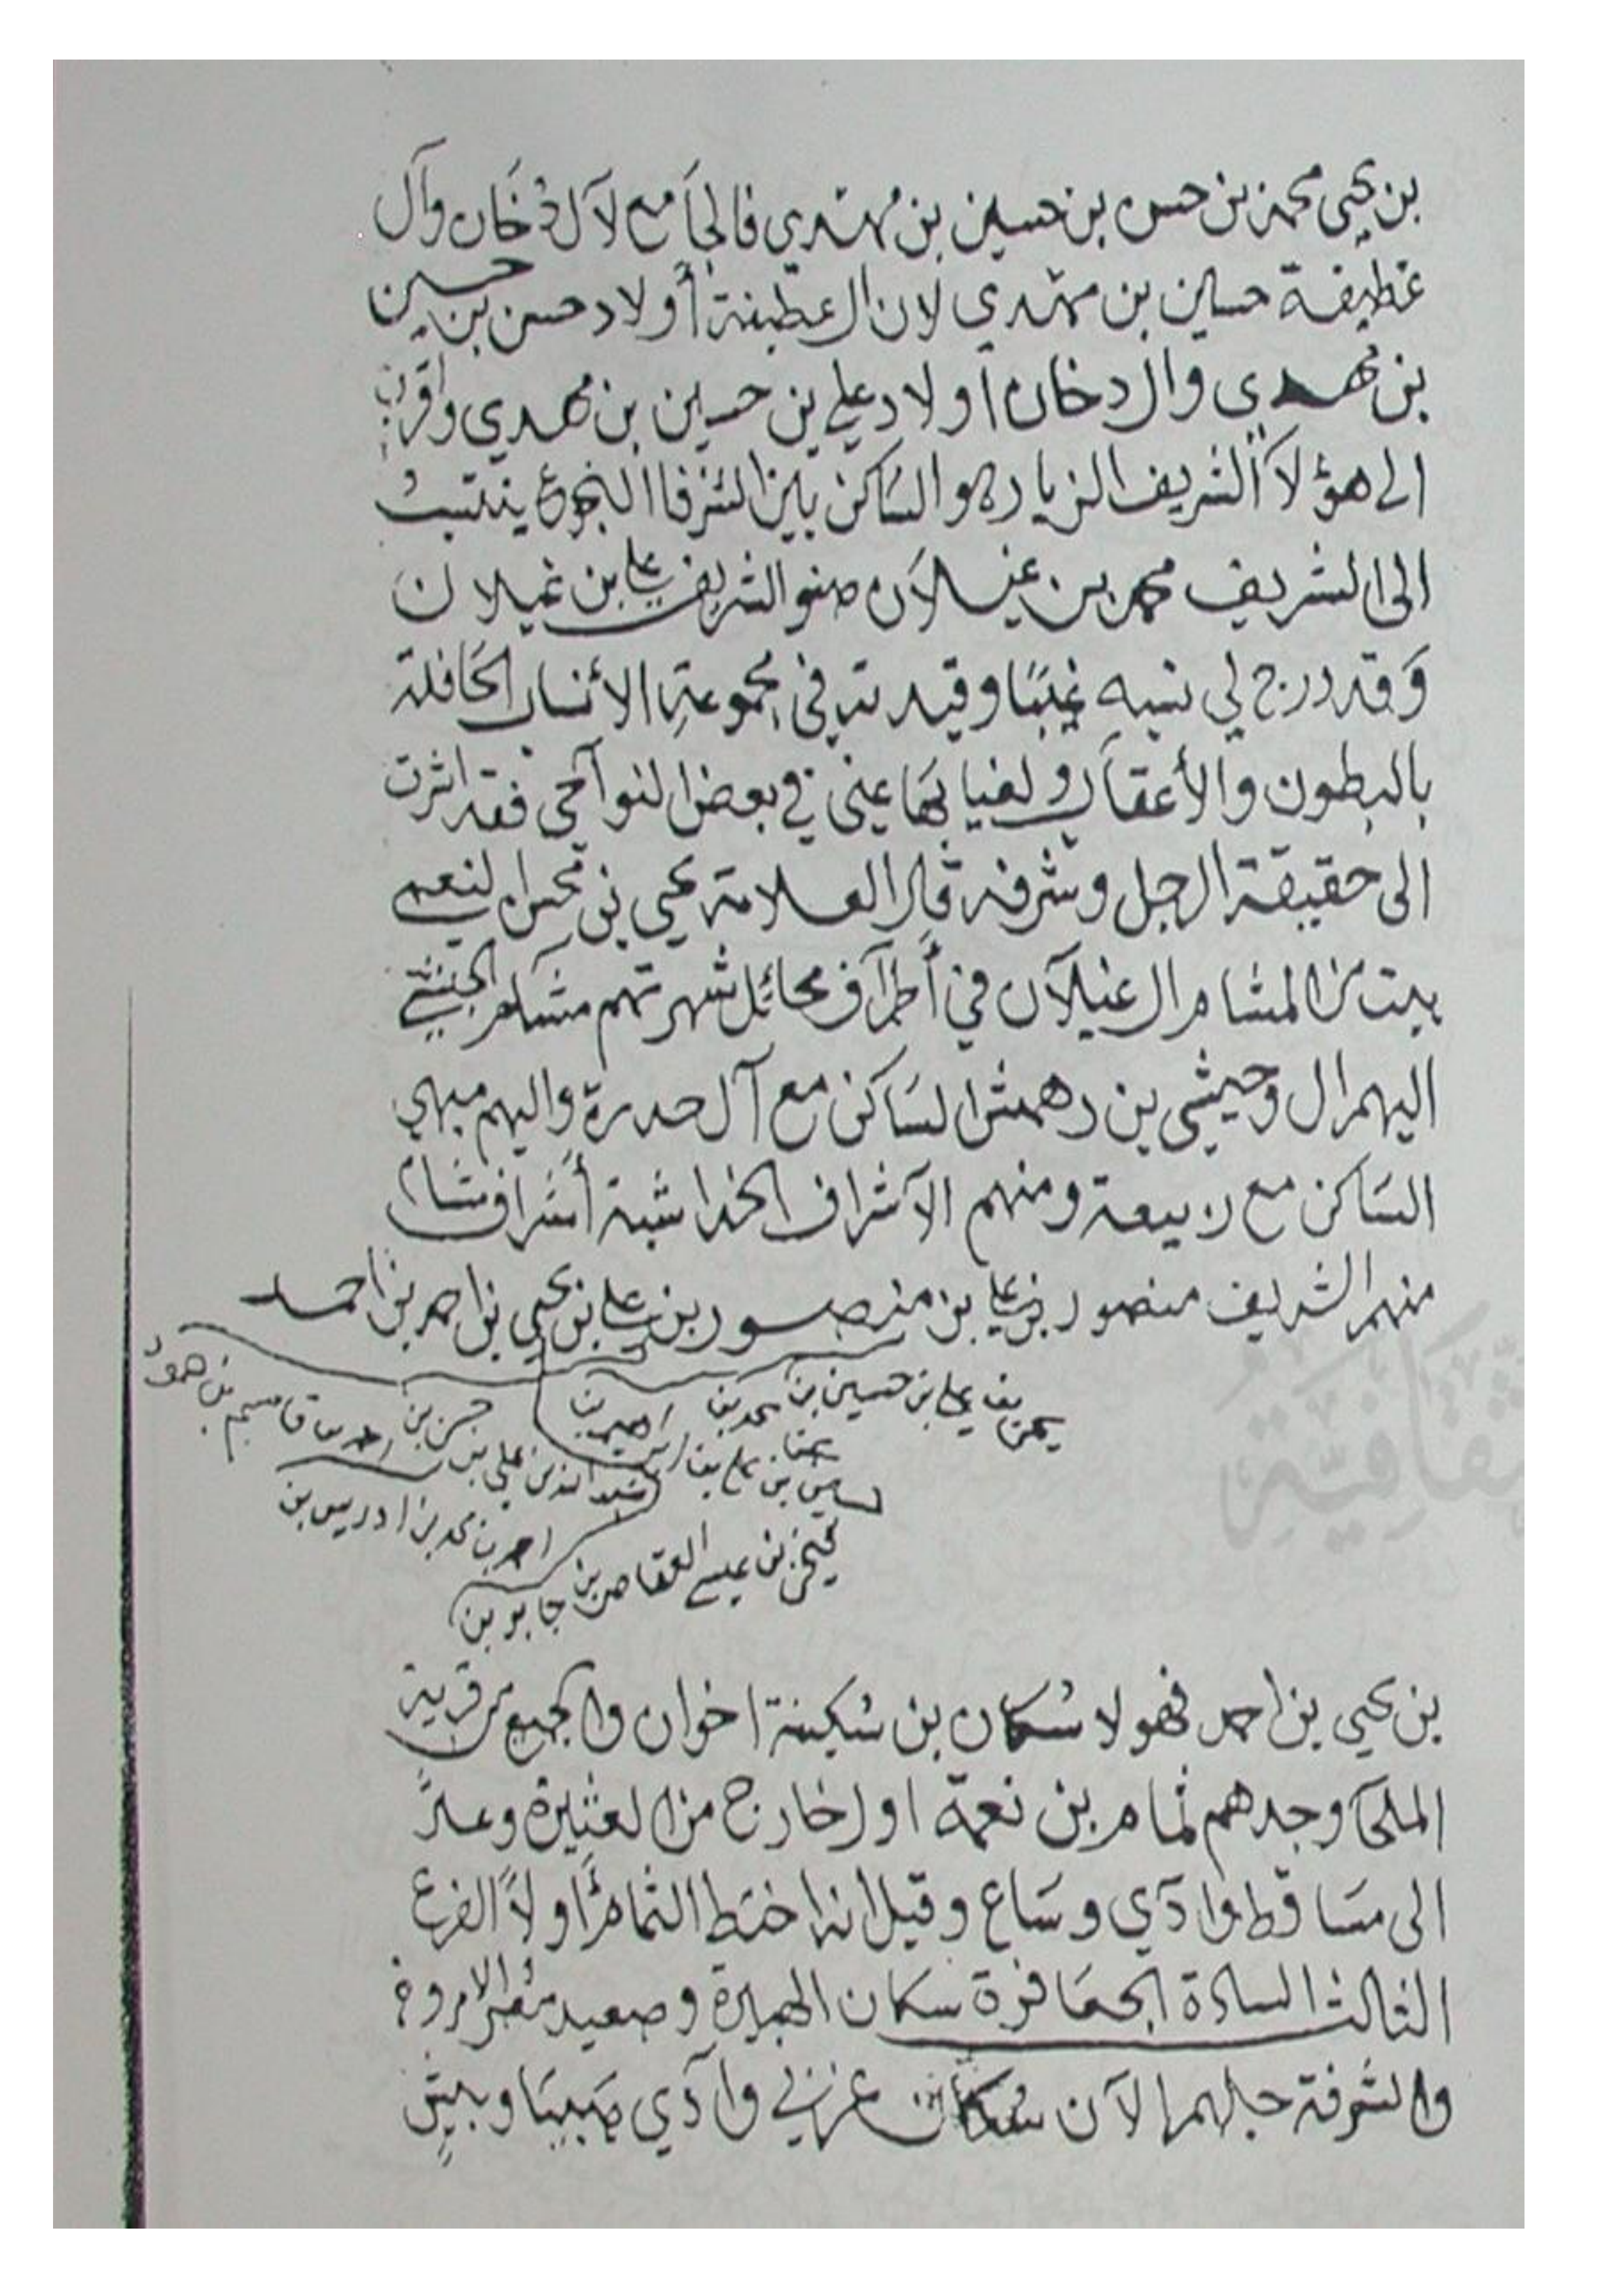 بن يحيى محمد بن حسن بن حسين بن مهدي فالجامع لآل دخان وآل
عطيفة حسين بن مهدي لان ال عطيفة أولاد حسن بن حسين
بن مهدي وال دخان أولاد علي بن حسين بن مهدي واقرب
الى هؤلآ الشريف الزياره والساكن بين الشرفا النجوع ينتسب
الى الشريف محمد بن غيلآن صنو الشريف علي بن غيلان
وقد درج لي نسبه غيبًا وقيدته في مجموعة الأنساب الحافلة
بالبطون والأعقاب ولغيابها عني في بعض النواحي فقد اشرت
الى حقيقة الرجل وشرفه قال العلامة يحيى بن محسن النعمي
بيت من المشام ال غيلآن في أطرآف محائل شهرتهم مشام
اليهم ال وحيشي بن دهمش الساكن مع آل حدرة واليهم
الساكن مع ربيعة ومنهم الآشراف الخداشية أشراف شام
منهم الشريف منصور بن علي بن منصور بن علي بن يحيى بن احمد بن احمد
بن علي بن حسين بن محمد بن احمد بن
حسن بن احمد بن قاسم بن حمود
بن علي بن
احمد بن محمد بن ادريس بن
بن عيسى بن جابر بن
بن يحيى بن احمد فهولا سكان بن سكينة اخوان والجميع من قرية
الملحا وجدهم ثمام بن نعمة اول خارج من العثيرة وعلا
الى مساقط وادي وساع وقيل انه اختط الثمامة أولاً الفرع
الثالث السادة الجعافرة سكان الهجيرة وصعيد
والشرفة جالهم الآن سكان غربي وآدي صبيا وبيش